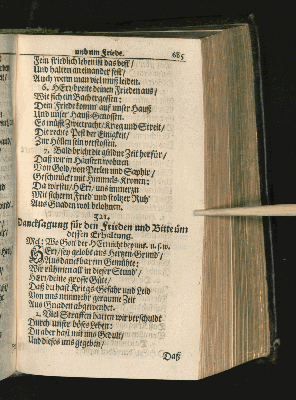 und um Friede. 685
Fein friedlich leben ist das best/
Und halten an einander fest/
Auch wenn man viel muß leiden.
6. HErr/ breite deinen Frieden aus/
Wie sich ein Bach ergossen:
Dein Friede komm auf unser Hauß
Und unser Hauß-Genossen.
Es müsse Zwietracht/ Krieg und Streit/
Die rechte Pest der Einigkeit/
Zur Höllen sein verstossen.
7. Bald bricht die güldne Zeit herfür/
Daß wir in Häusern wohnen
Von Gold/ von Perlen und Saphir/
Geschmückt mit Himmels-Kronen:
Da wirstu/ HErr/ uns immerzu
Mit sicherm Fried und stolzer Ruh
Aus Gnaden voll belohnen.
321.
Dancksagung für den Frieden und Bitte um
dessen Erhaltung.
Mel: Wo Gott der HErr nicht bey uns. u. s. w.
HErr/ sey gelobt aus Herzen Grund/
Aus danckbarem Gemühte:
Wir rühmen all in dieser Stund/
HErr/ deine grosse Güte/
Daß du hast Kriegs-Gefahr und Leid
Von uns nunmehr geraume Zeit
Aus Gnaden abgewendet.
2. Viel Straffen hatten wir verschuldt
Durch unser böses Leben:
Du aber hast mit uns Gedult/
Und dieses uns gegeben/
Daß